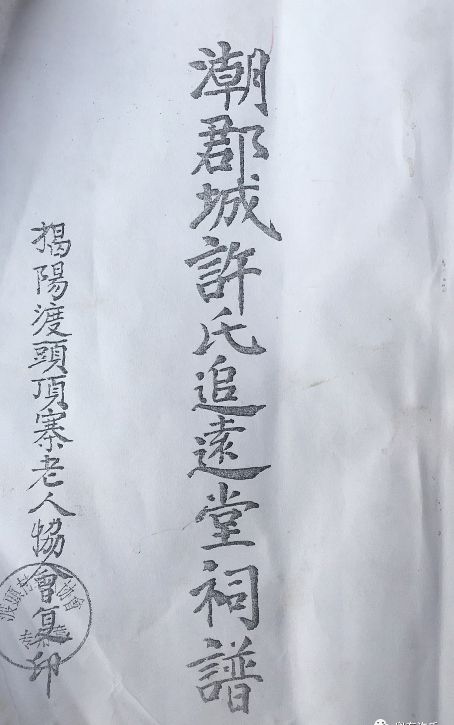 潮郡城許氏追遠堂祠譜
揭陽渡頭頂寨老人協會复印